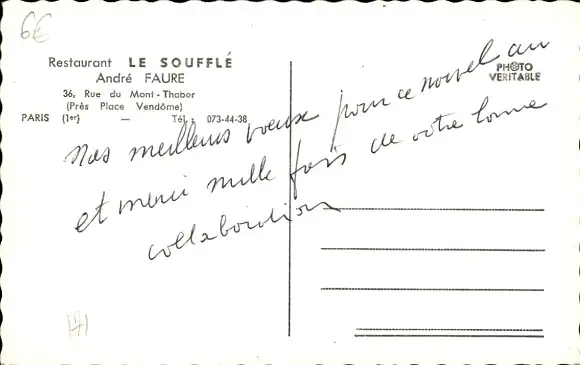 6€
Restaurant LE SOUFFLÉ
André FAURE
36, Rue du Mont-Thabor
(Près Place Vendôme)
PARIS (1er) — Tél.: 073-44-38
PHOTO
VERITABLE
Nos meilleurs voeux pour ce nouvel an
et merci mille fois de votre bonne
collaboration